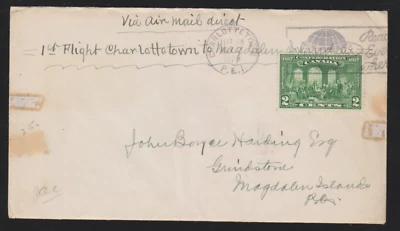 Via Air mail direct
1st Flight Charlottetown to Magdalen Islands
CHARLOTTETOWN
P.E.I.
1867 CONFEDERATION 1927
CANADA
2 CENTS 2
John Boyce Harding Esq
Grindstone
Magdalen Islands